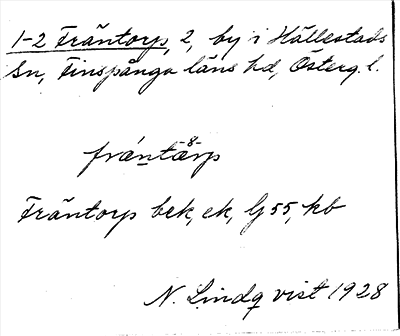 1-2 Fräntorp, 2, by i Hällestads
Sn, Finspånga läns hd, Österg. l.
-8-
frántärp
Fräntorp bek, ek, Gj 55, kb
N. Lindqvist 1928